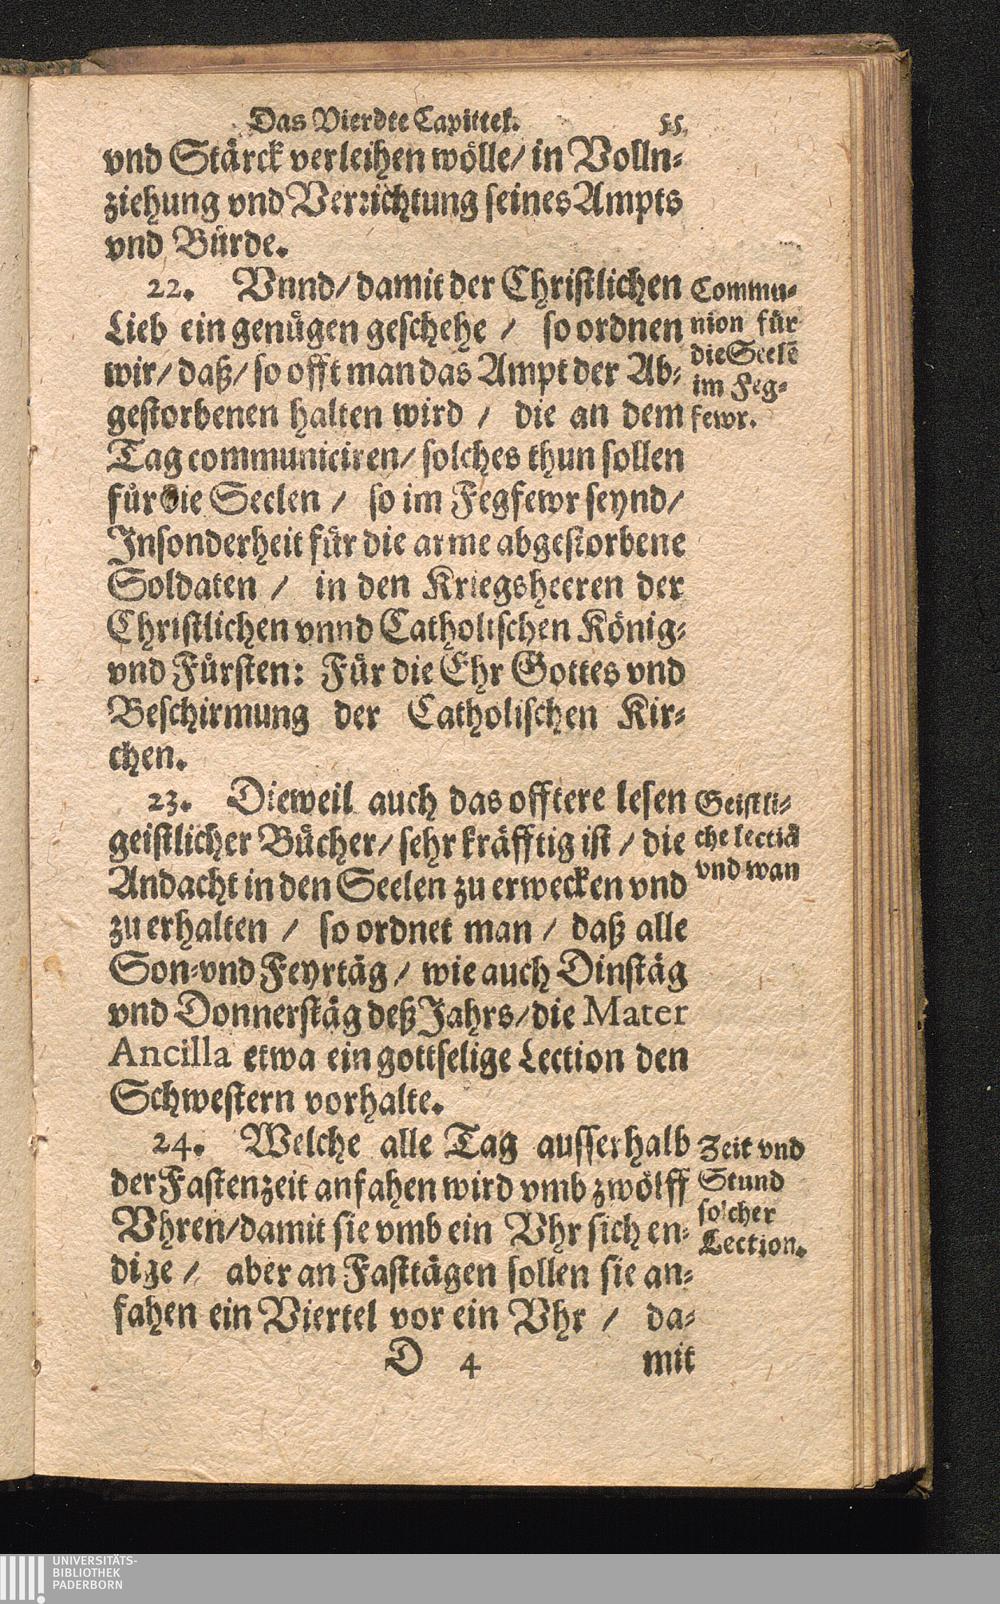 Das Vierdte Capittel. 55.
vnd Stärck verleihen wölle/ in Volln-
ziehung vnd Verrichtung seines Ampts
vnd Bürde.
22. Vnnd/ damit der Christlichen
Lieb ein genügen geschehe / so ordnen
wir/ daß/ so offt man das Ampt der Ab-
gestorbenen halten wird / die an dem
Tag communiciren/ solches thun sollen
für die Seelen / so im Fegfewr seynd/
Insonderheit für die arme abgestorbene
Soldaten / in den Kriegsheeren der
Christlichen vnnd Catholischen König-
vnd Fürsten: Für die Ehr Gottes vnd
Beschirmung der Catholischen Kir-
chen.
Commu-
nion für
die Seelē
im Feg-
fewr.
23. Dieweil auch das offtere lesen
geistlicher Bücher/ sehr kräfftig ist / die
Andacht in den Seelen zu erwecken vnd
zu erhalten / so ordnet man / daß alle
Son-vnd Feyrtäg / wie auch Dinstäg
vnd Donnerstäg deß Jahrs/ die Mater
Ancilla etwa ein gottselige Lection den
Schwestern vorhalte.
Geistli-
che lectiā
vnd wan
24. Welche alle Tag ausserhalb
der Fastenzeit anfahen wird vmb zwölff
Vhren/ damit sie vmb ein Vhr sich en-
dige / aber an Fasttägen sollen sie an-
fahen ein Viertel vor ein Vhr / da-
Zeit vnd
Stund
solcher
Lection.
D 4 mit
UNIVERSITÄTS-
BIBLIOTHEK
PADERBORN